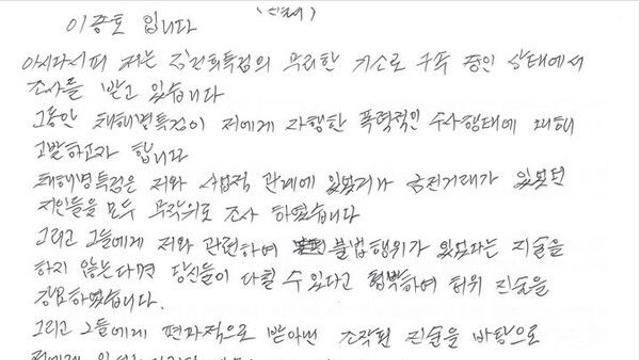 이종호 입니다
아시다시피 저는 김건희특검의 무리한 기소로 구속 중인 상태에서
조사를 받고 있습니다
그동안 채해병특검이 저에게 자행한 폭력적인 수사행태에 대해
고발하고자 합니다
채해병특검은 저와 사업적 관계에 있었거나 금전거래가 있었던
지인들을 모두 무작위로 조사 하였습니다
그리고 그들에게 저와 관련하여 불법행위가 있었다는 진술을
하지 않는다면 당신들이 다칠 수 있다고 협박하여 허위 진술을
강요하였습니다.
그리고 그들에게 편파적으로 받아낸 조작된 진술을 바탕으로